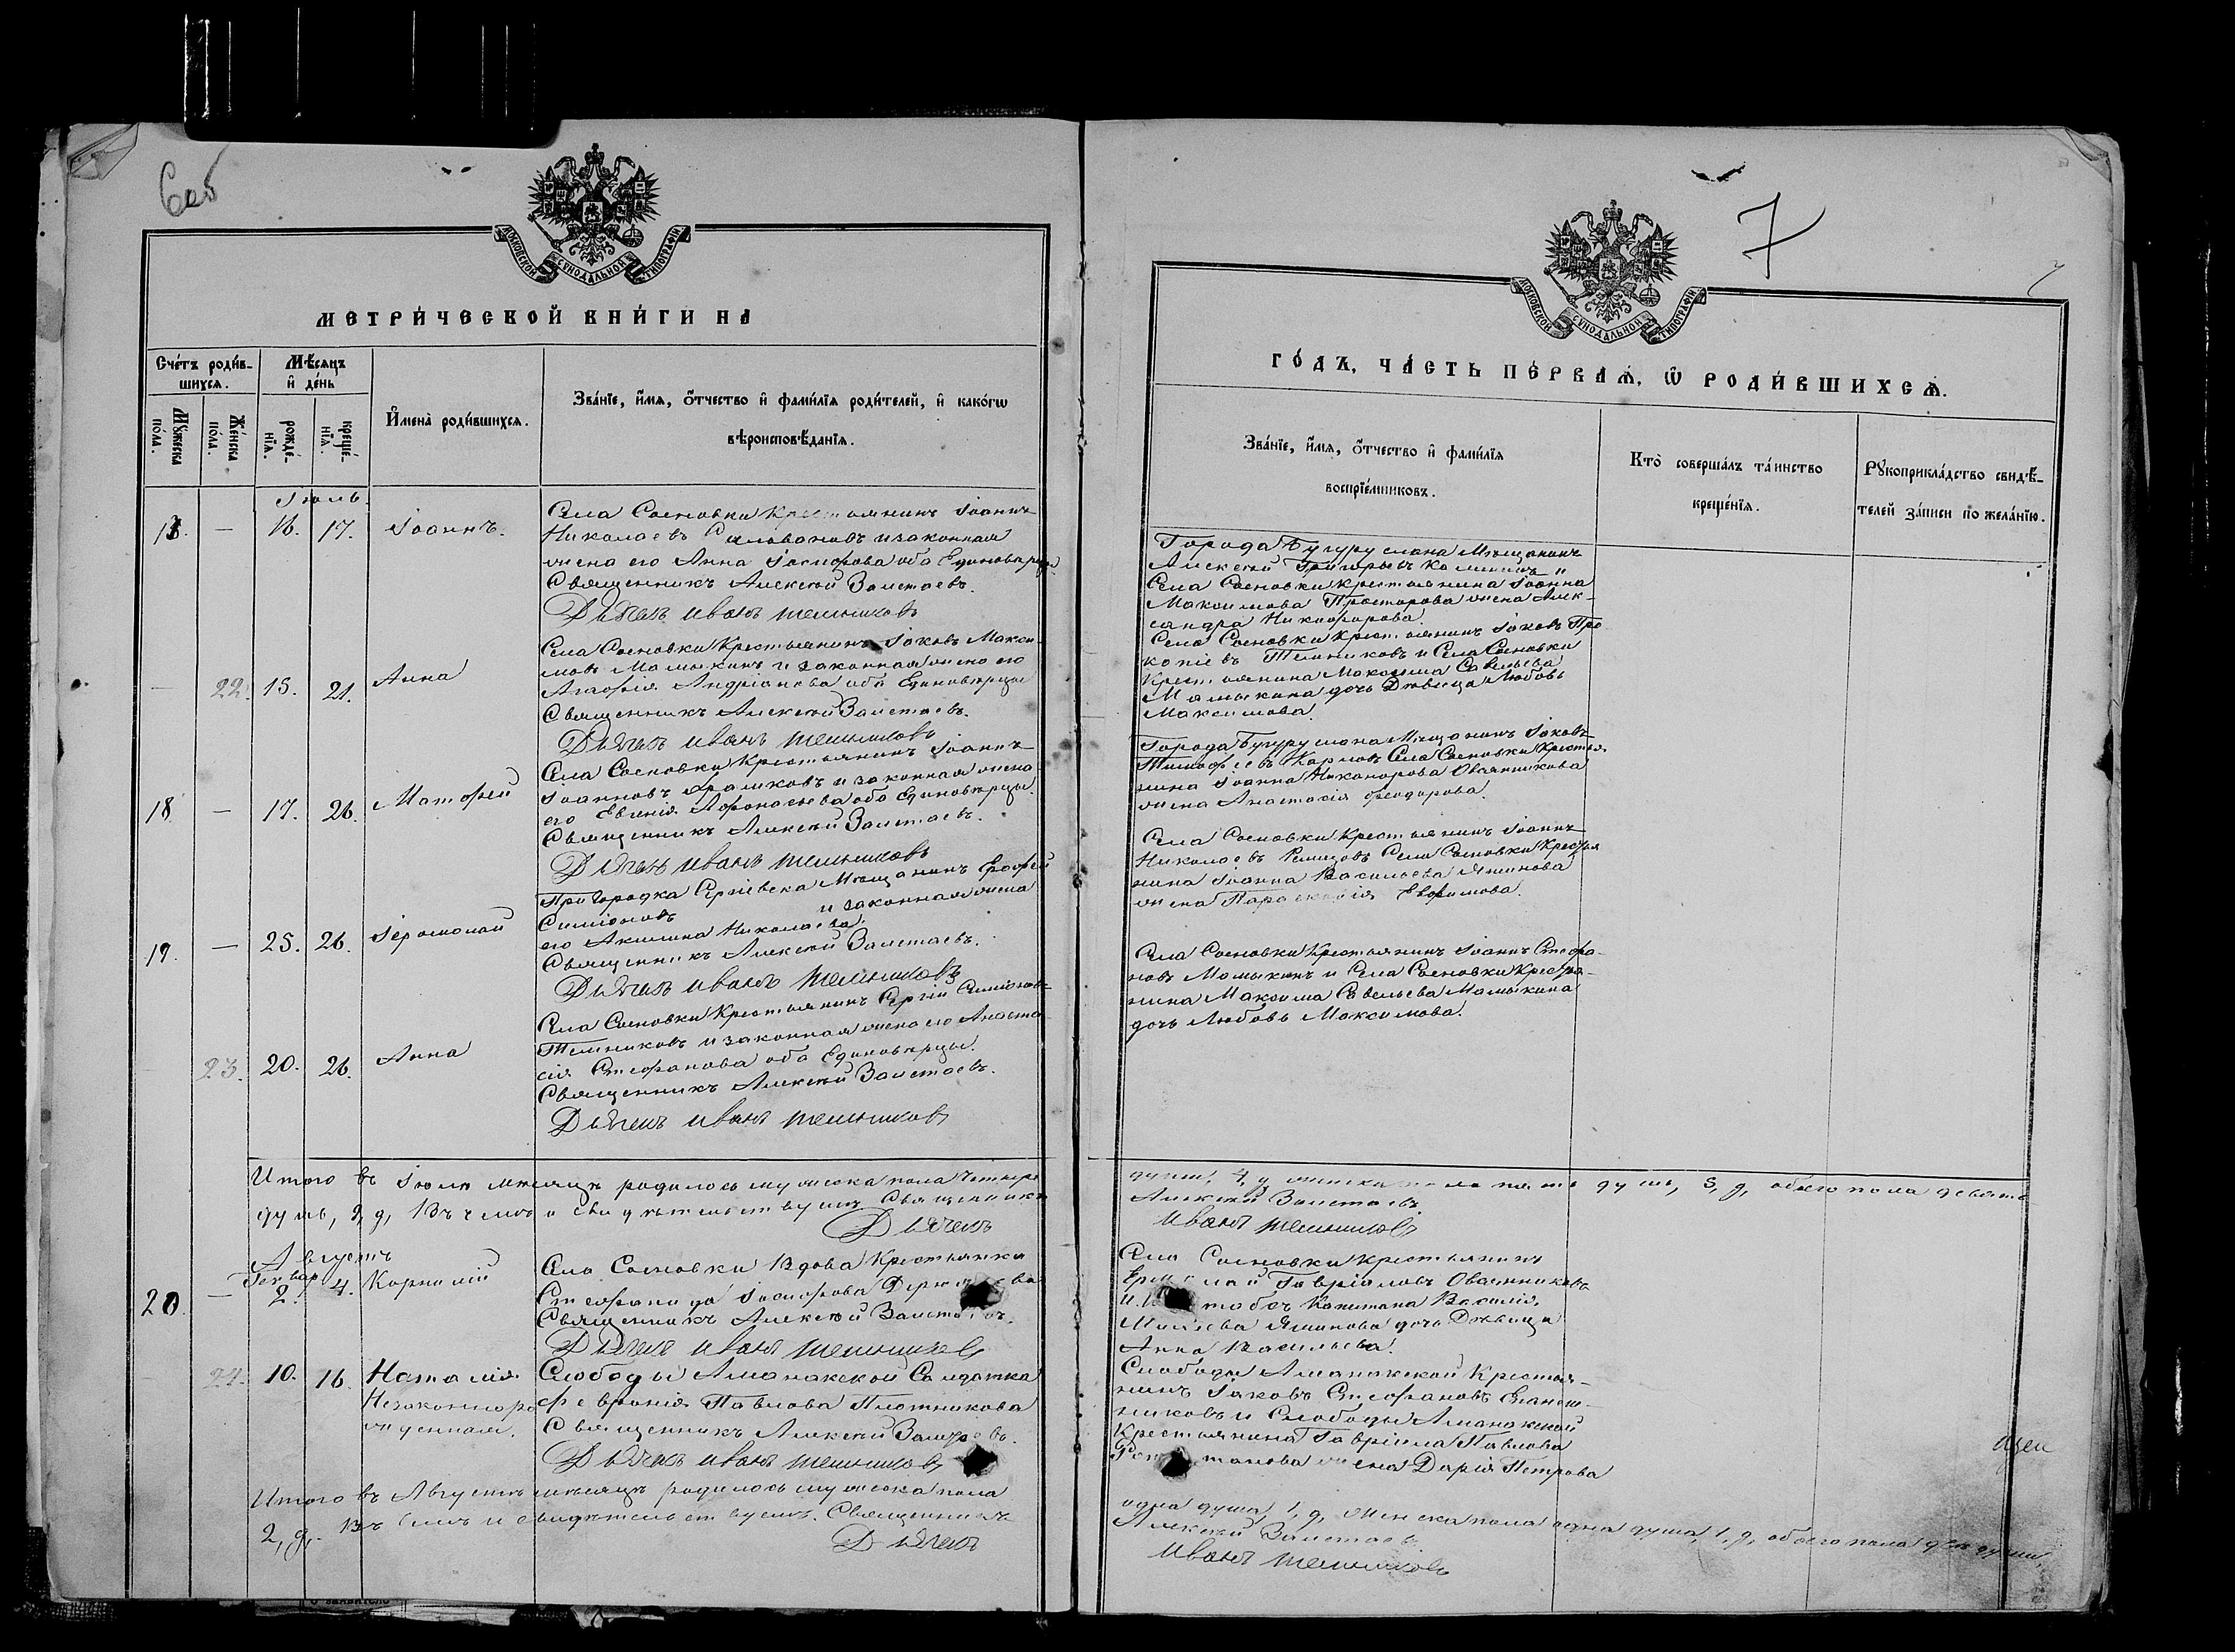 6об
МОСКОВСКОЙ СѴНОДАЛЬНОЙ ТИПОГРАФІИ
МЕТРИ́ЧЕСКОЙ КНИ́ГИ НА
Сче́тъ роди́в-
шихся.
Мѣ́сяцъ
и де́нь
Мꙋ́жеска
по́ла.
Же́нска
по́ла.
рожде́-
нїя.
креще́-
нїя.
Имена̀ роди́вшихся.
Зва́нїе, и́мя, о́тчество и фами́лїя роди́телей, и како́гѡ
вѣроисповѣ́данїя.
Іюль.
— 16. 17. Іоаннъ.
Села Сосновки Крестьянинъ Іоаннъ
Николаевъ Силовановъ и законная
жена его Анна Іосифова оба Единоверцы
Священникъ Алексѣй Залетаевъ.
Дьячекъ Иванъ Тельниковъ
22. 15. 21. Анна
Села Сосновки Крестьянинъ Іаковъ Макси-
мовъ Мамыкинъ и законная жена его
Агафія Андріанова оба Единовѣрцы
Священникъ Алексѣй Залетаевъ.
Дьячекъ Иванъ Тельниковъ
18 — 17. 26. Матфей
Села Сосновки Крестьянинъ Іоаннъ
Іоанновъ и законная жена
его Евгенія Афонасьева оба Единовѣрцы.
Священникъ Алексѣй Залетаевъ.
Дьячекъ Иванъ Тельниковъ
19. — 25. 26.
Пригородка Сергіевска Мещанинъ Ерофей
Симіоновъ и законная жена
его Акилина Николаева.
Священникъ Алексѣй Залетаевъ.
Дьячекъ Иванъ Тельниковъ
23. 20. 26. Анна
Села Сосновки Крестьянинъ Сергій Симіоновъ
Тельниковъ и законная жена его Анаста-
сія Стефанова оба Единовѣрцы.
Священникъ Алексѣй Залетаевъ.
Дьячекъ Иванъ Тельниковъ
Итого въ Іюлѣ мѣсяцѣ родилось мужеска пола четыре
душъ, 9, д, Въ чемъ и свидѣтельствуемъ Священникъ
Дьячекъ
Августъ
20. — 2. 4. Корнилій
Села Сосновки Вдова Крестьянка
Стефанида Іосифова
Священникъ Алексѣй Залетаевъ.
Дьячекъ Иванъ Тельниковъ
24. 10. 16. Наталія
Незаконноро
жденная.
Слободы Аманакской Солдатка
Февронія Павлова Плотникова
Священникъ Алексѣй Залетаевъ.
Дьячекъ Иванъ Тельниковъ
Итого въ Августѣ мѣсяцѣ родилось мужеска пола
2, д,. Въ чемъ и свидѣтельствуемъ. Священникъ
Дьячекъ
7
7
МОСКОВСКОЙ СѴНОДАЛЬНОЙ ТИПОГРАФІИ
ГО́ДЪ, ЧА́СТЬ ПЕ́РВАЯ, Ѡ РОДИ́ВШИХСЯ.
Зва́нїе, и́мя, о́тчество и фами́лїя
воспрїе́мниковъ.
Кто̀ соверша́лъ та́инство
креще́нїя.
Рꙋкоприкла́дство свидѣ́-
телей за́писи по жела́нїю.
Города Бугуруслана Мѣщанинъ
Алексѣй Григорьевъ Калининъ и
Села Сосновки крестьянина Іоанна
Максимова Просторова жена Алек-
сандра Никифорова.
Села Сосновки Крестьянинъ Іаковъ Про-
копіевъ Тельниковъ и Села Сосновки
Крестьянина Максима Савельева
Мамыкина дочь Дѣвица Любовь
Максимова.
Города Бугуруслана Мѣщанинъ Іаковъ
Тимофѣевъ Карповъ Села Сосновки Крестья
нина Іоанна Никанорова Овчинникова
жена Анастасія Феодорова.
Села Сосновки Крестьянинъ Іоаннъ
Николаевъ Ремизовъ Села Сосновки Крестья
нина Іоанна Васильева Яшинова
жена Параскевія Евфимова.
Села Сосновки Крестьянинъ Іоаннъ Стефа-
новъ Мамыкинъ и Села Сосновки Крестья-
нина Максима Савельева Мамыкина
дочь Любовь Максимова.
душъ, 4, д, женска пола пять душъ, 5, д, обоего пола девять
Алексѣй Залетаевъ.
Иванъ Тельниковъ
Села Сосновки Крестьянинъ
Гавріиловъ Овчинниковъ
Капитана Василія
Яшинова дочь Дѣвица
Анна Васильева.
Слободы Аманакской Крестья-
нинъ Іаковъ Стефановъ
никовъ и Слободы Аманакской
Крестьянина Гавріила Павлова
жена Дарія Петрова
одна душа, 1, д, женска пола одна душа, 1, д, обоего пола двѣ души,
Алексѣй Залетаевъ
Иванъ Тельниковъ